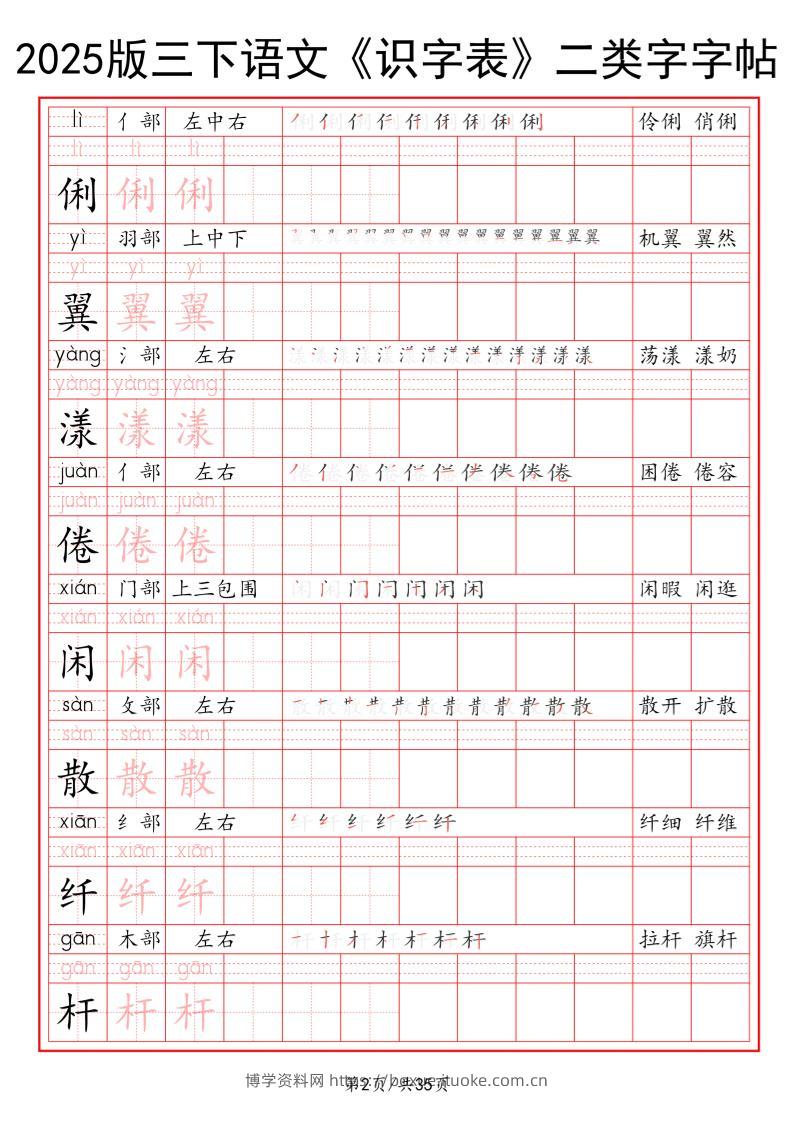 2025版三下语文《识字表》二类字字帖
lì 亻部 左中右 伶俐 俏俐
lì lì lì
俐 俐 俐
yì 羽部 上中下 机翼 翼然
yì yì yì
翼 翼 翼
yàng 氵部 左右 荡漾 漾奶
yàng yàng yàng
漾 漾 漾
juàn 亻部 左右 困倦 倦容
juàn juàn juàn
倦 倦 倦
xián 门部 上三包围 闲暇 闲逛
xián xián xián
闲 闲 闲
sàn 攵部 左右 散开 扩散
sàn sàn sàn
散 散 散
xiān 纟部 左右 纤细 纤维
xiān xiān xiān
纤 纤 纤
gān 木部 左右 拉杆 旗杆
gān gān gān
杆 杆 杆
博学资料网
第2页/共35页